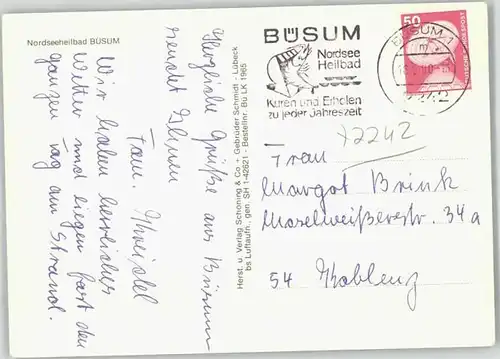 Nordseeheilbad BÜSUM
Herzliche Grüße aus Büsum
sendet Ihnen
Fam.
Wir haben herrliches
Wetter und liegen fast den
ganzen Tag am Strand.
Herst. u. Verlag Schöning & Co. + Gebrüder Schmidt - Lübeck
bs Luftaufn. gen. SH 1-42621 - Bestellnr. Bü LK 1965
BÜSUM
Nordsee
Heilbad
Kuren und Erholen
zu jeder Jahreszeit
BÜSUM 1
50
Frau
Margot Brink
Moselweißerstr. 34a
54 Koblenz